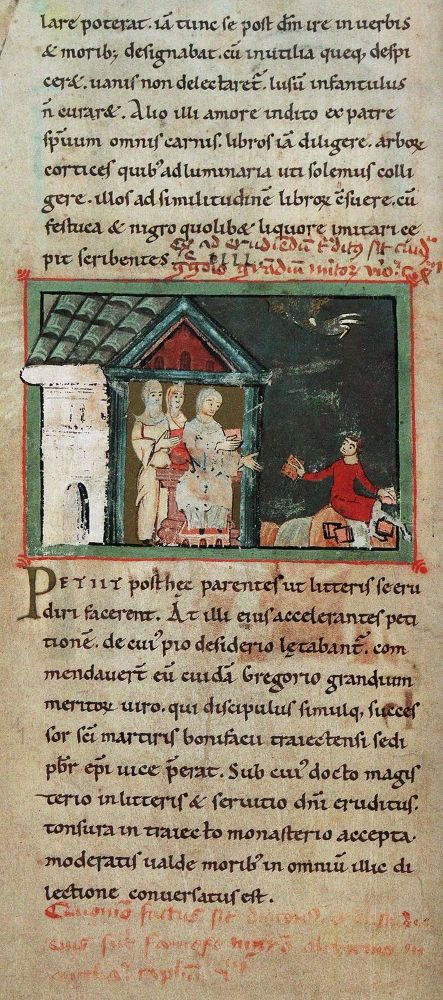 lare poterat. iā tunc se post dm̄ ire in verbis
& morib; designabat. cū inutilia queq; despi
ceret. uanis non delectaret̄. lusum infantulus
n̄ curaret. Alio illi amore indito ex patre
spūum omnis carnis. libros iā diligere. arborꝝ
cortices quib' ad luminaria uti solemus colli
gere. illos ad similitudinē librorꝝ c̄suere. cū
festuca & nigro quolib& liquore imitari ce
pit scribentes.
PETIIT post hec parentes ut litteris se eru
diri facerent. At illi ejus accelerantes peti
tionē. de cui' pio desiderio lętabant̄. com
mendauerт̄ eū cuidā Gregorio grandium
meritorꝝ uiro. qui discipulus simulq; succes
sor sc̄i martiris bonifacii traiectensi sedi
pbr̄ ep̄i uice p̄erat. Sub cui' docto magis
terio in litteris & seruitio dn̄i eruditus.
tonsura in traiecto monasterio accepta.
moderatis ualde morib' in omniū illic di
lectione conuersatus est.